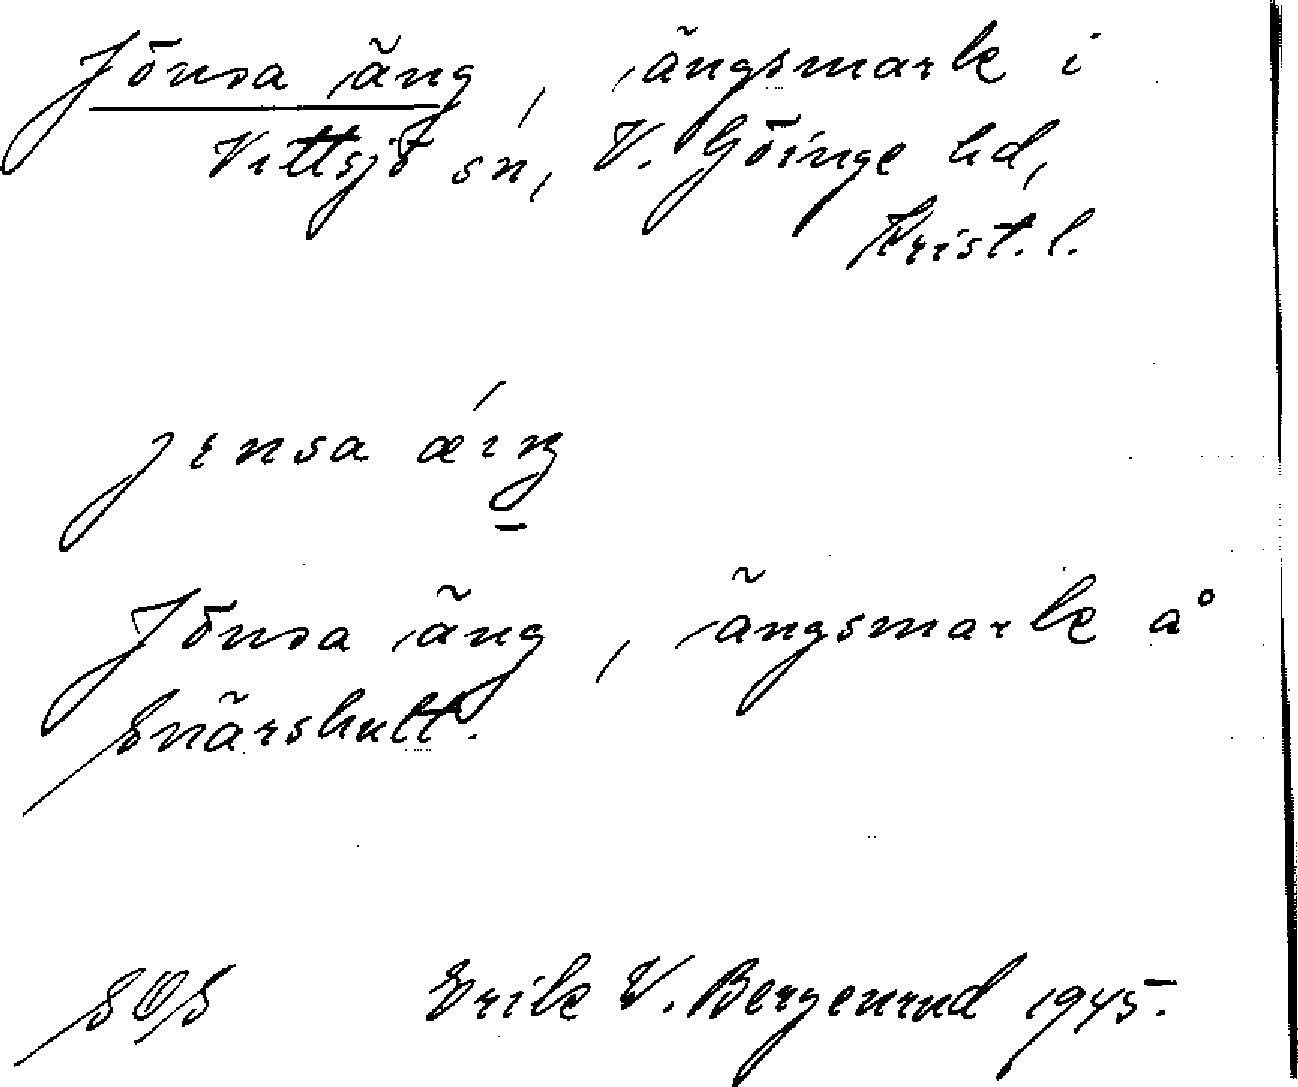 Jönsa äng, ängsmark i
Vittsjö sn, V. Göinge hd,
Krist. l.
Jönsa äng, ängsmark å
Snärshult.
SOS Erik V. Bergenrud 1945.